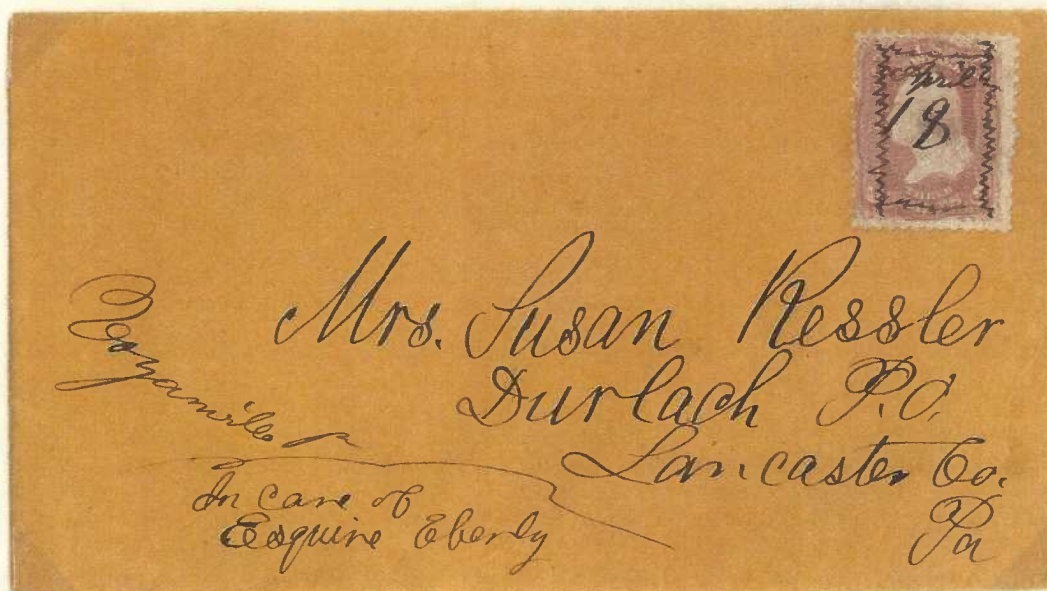 April
18
Mrs. Susan Kessler
Durlach P.O.
Lancaster Co.
Pa
In care of
Esquire Eberly